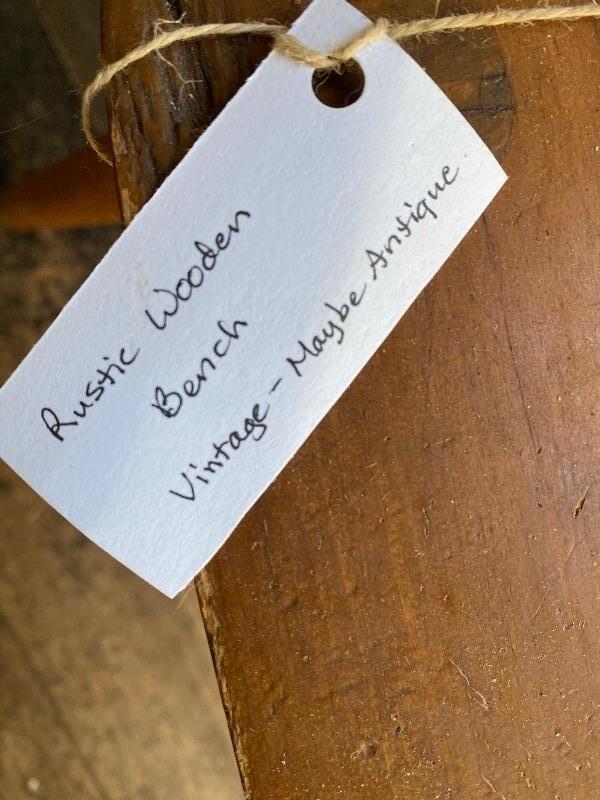 Rustic Wooden
Bench
Vintage - Maybe Antique